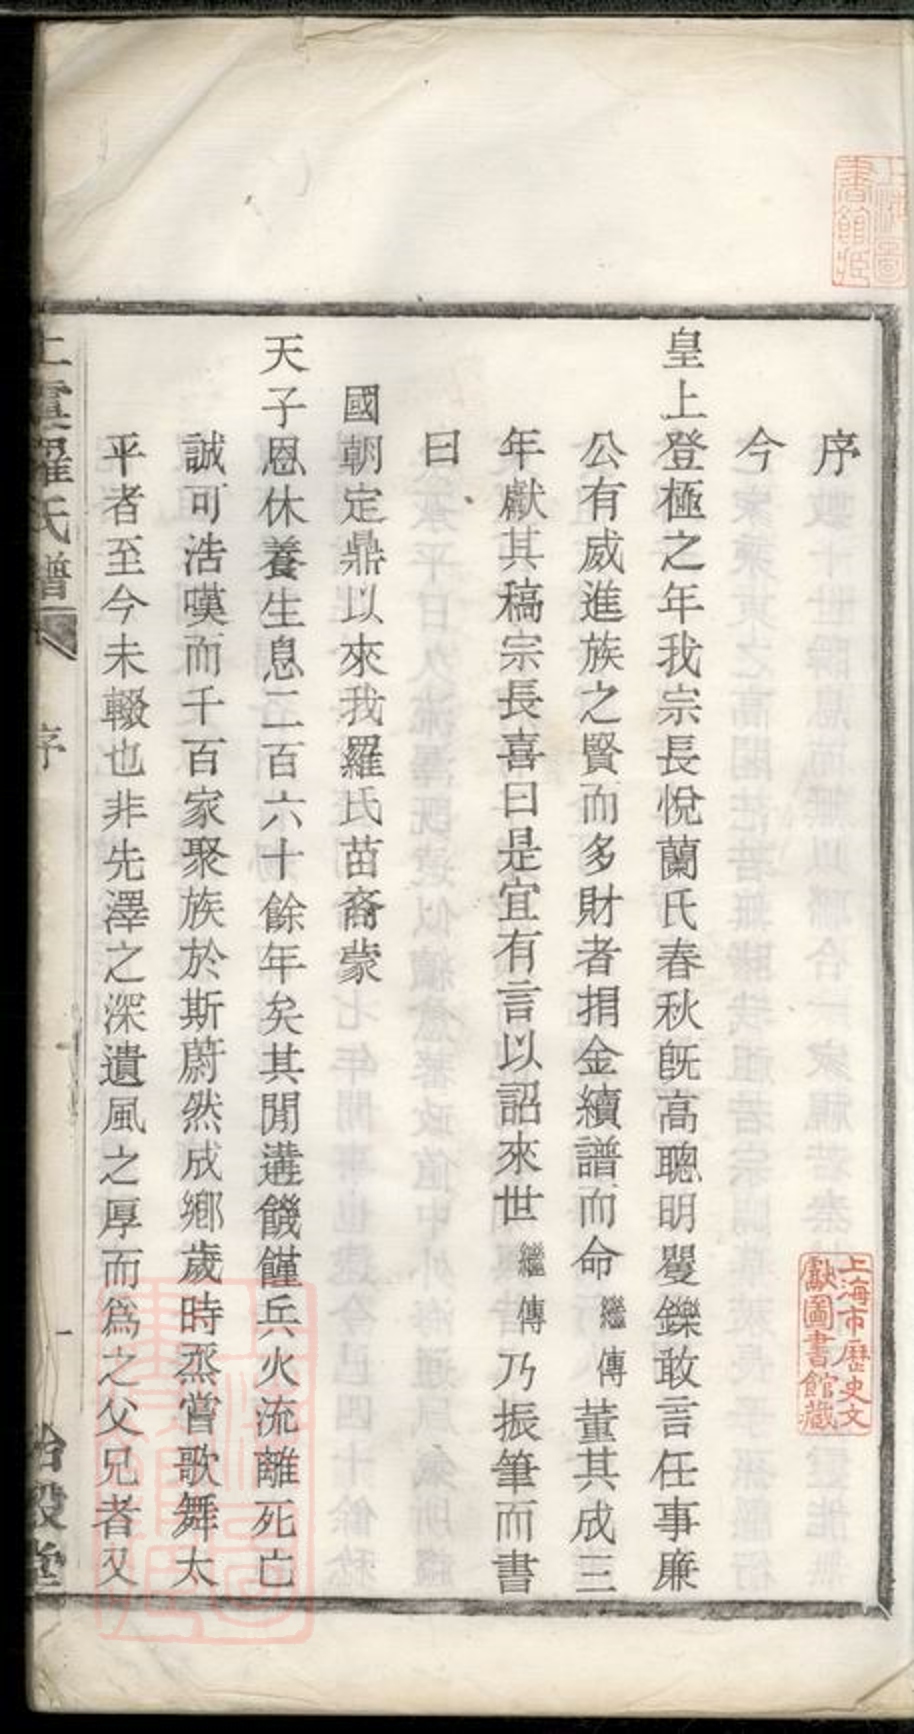 序
今
皇上登極之年我宗長悅蘭氏春秋旣高聰明矍鑠敢言任事廉
公有威進族之賢而多財者捐金續譜而命繼傳董其成三
年獻其稿宗長喜曰是宜有言以詔來世繼傳乃振筆而書
曰
國朝定鼎以來我羅氏苗裔蒙
天子恩休養生息二百六十餘年矣其閒遘饑饉兵火流離死亡
誠可浩嘆而千百家聚族於斯蔚然成鄉歲時烝嘗歌舞太
平者至今未輟也非先澤之深遺風之厚而爲之父兄者又
上虞羅氏譜
序
一
上海市歷史文
獻圖書館藏